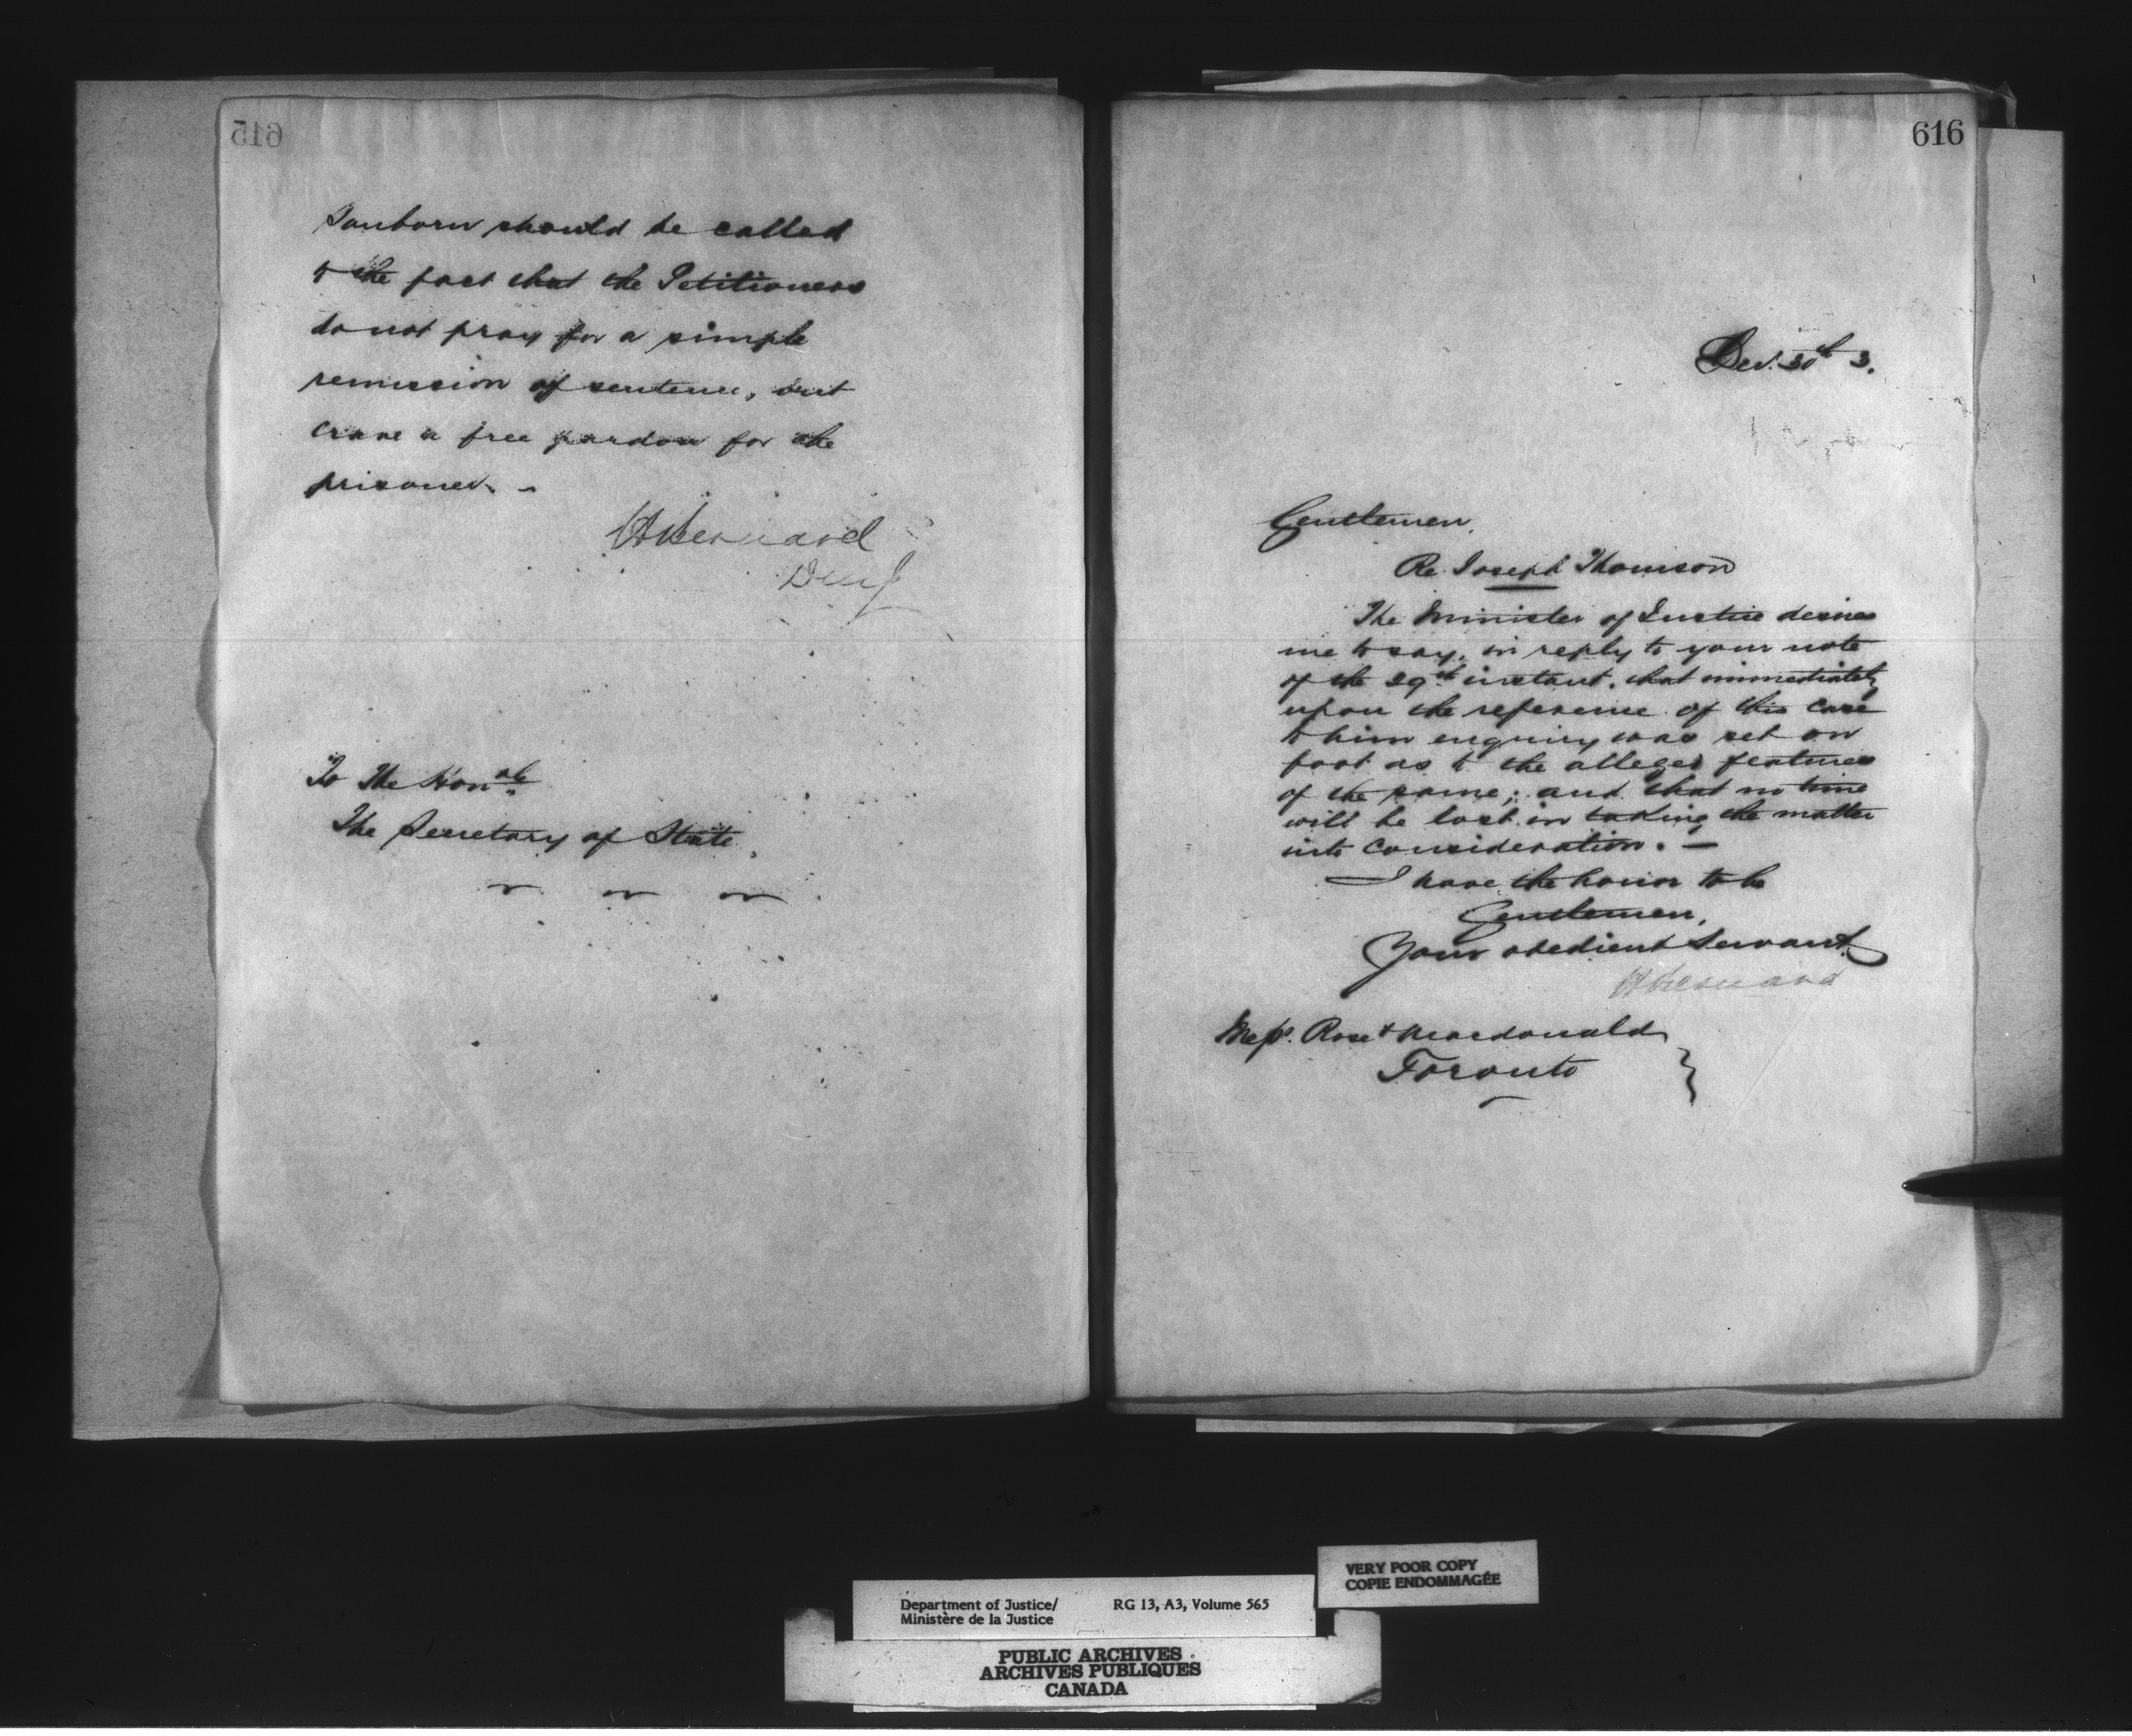 615
Sanborn should be called
to the fact that the Petitioners
do not pray for a simple
remission of sentence, but
crave a free pardon for the
prisoner. -
H Bernard
D M J
To The Honble
The Secretary of State
616
Dec. 30th 3.
Gentlemen,
Re Joseph Thomson
The Minister of Justice desires
me to say, in reply to your note
of the 29th instant, that immediately
upon the reference of this case
to him enquiry was set on
foot as to the alleged features
of the same; and that no time
will be lost in taking the matter
into consideration. -
I have the honor to be
Gentlemen,
Your obedient Servant
H Bernard
Messrs. Rose & Macdonald
Toronto
VERY POOR COPY
COPIE ENDOMMAGÉE
Department of Justice/ RG 13, A3, Volume 565
Ministère de la Justice
PUBLIC ARCHIVES
ARCHIVES PUBLIQUES
CANADA